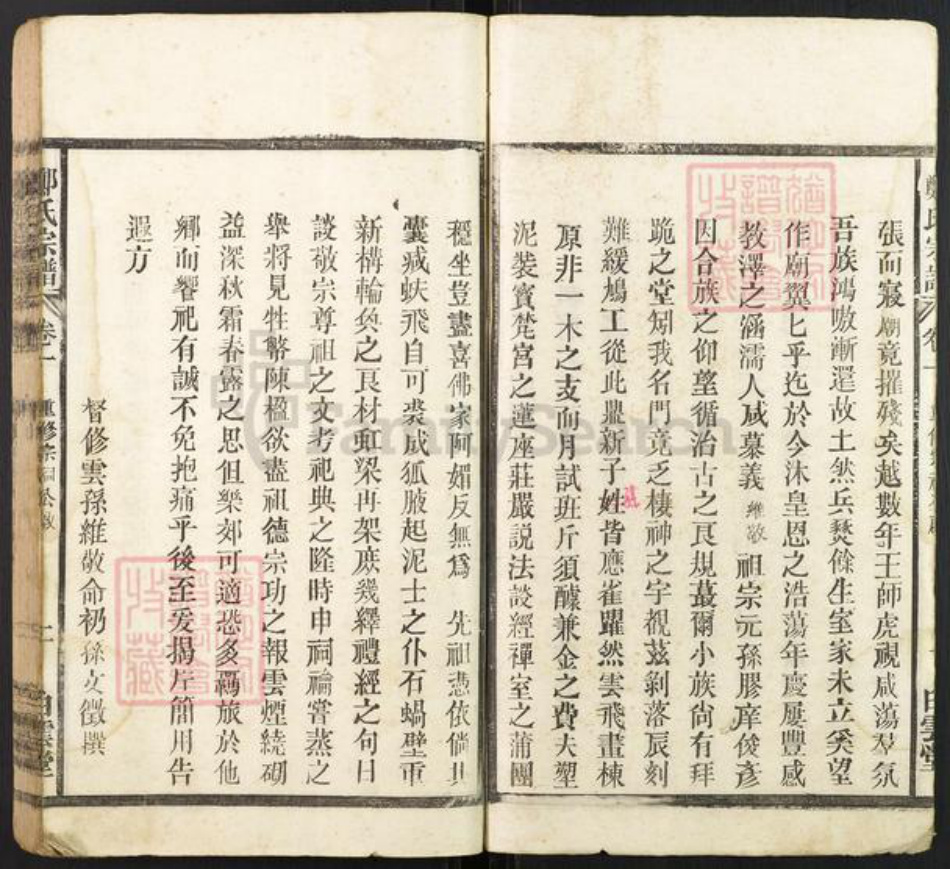 張而寢廟竟摧殘矣越數年王師虎視咸蕩羣氛
吾族鴻嗷漸還故土然兵燹餘生室家未立奚望
作廟翼匕乎迄於今沐皇恩之浩蕩年慶屢豐感
教澤之涵濡人咸慕義維敬祖宗元孫膠庠俊彥
因合族之仰望循治古之良規蕞爾小族尙有拜
跪之堂矧我名門竟乏棲神之宇覩茲剝落辰刻
難緩鳩工從此鼎新子姓皆應雀躍然雲飛畫棟
原非一木之支而月試班斤須醵兼金之費夫塑
泥裝寳梵宮之蓮座莊嚴説法談經禪室之蒲團
穩坐豈盡喜佛家阿媚反無爲 先祖憑依倘其
囊瘷蚨飛自可裘成狐腋起泥士之仆石蝸壁重
新構輪奐之良材虹梁再架庶幾繹禮經之句日
談敬宗尊祖之文考祀典之隆時申祠禴嘗蒸之
舉將見牲牷陳楹欲盡祖德宗功之報雲煙繞砌
益深秋霜春露之思但樂郊可適恐多羇旅於他
鄉而饗祀有誠不免抱痛乎後至爰搦片簡用告
遐方
督修雲孫維敬命礽孫文徵撰
鄭氏宗譜
卷一
重修宗祠公啟
二
白雲堂
FamilySearch